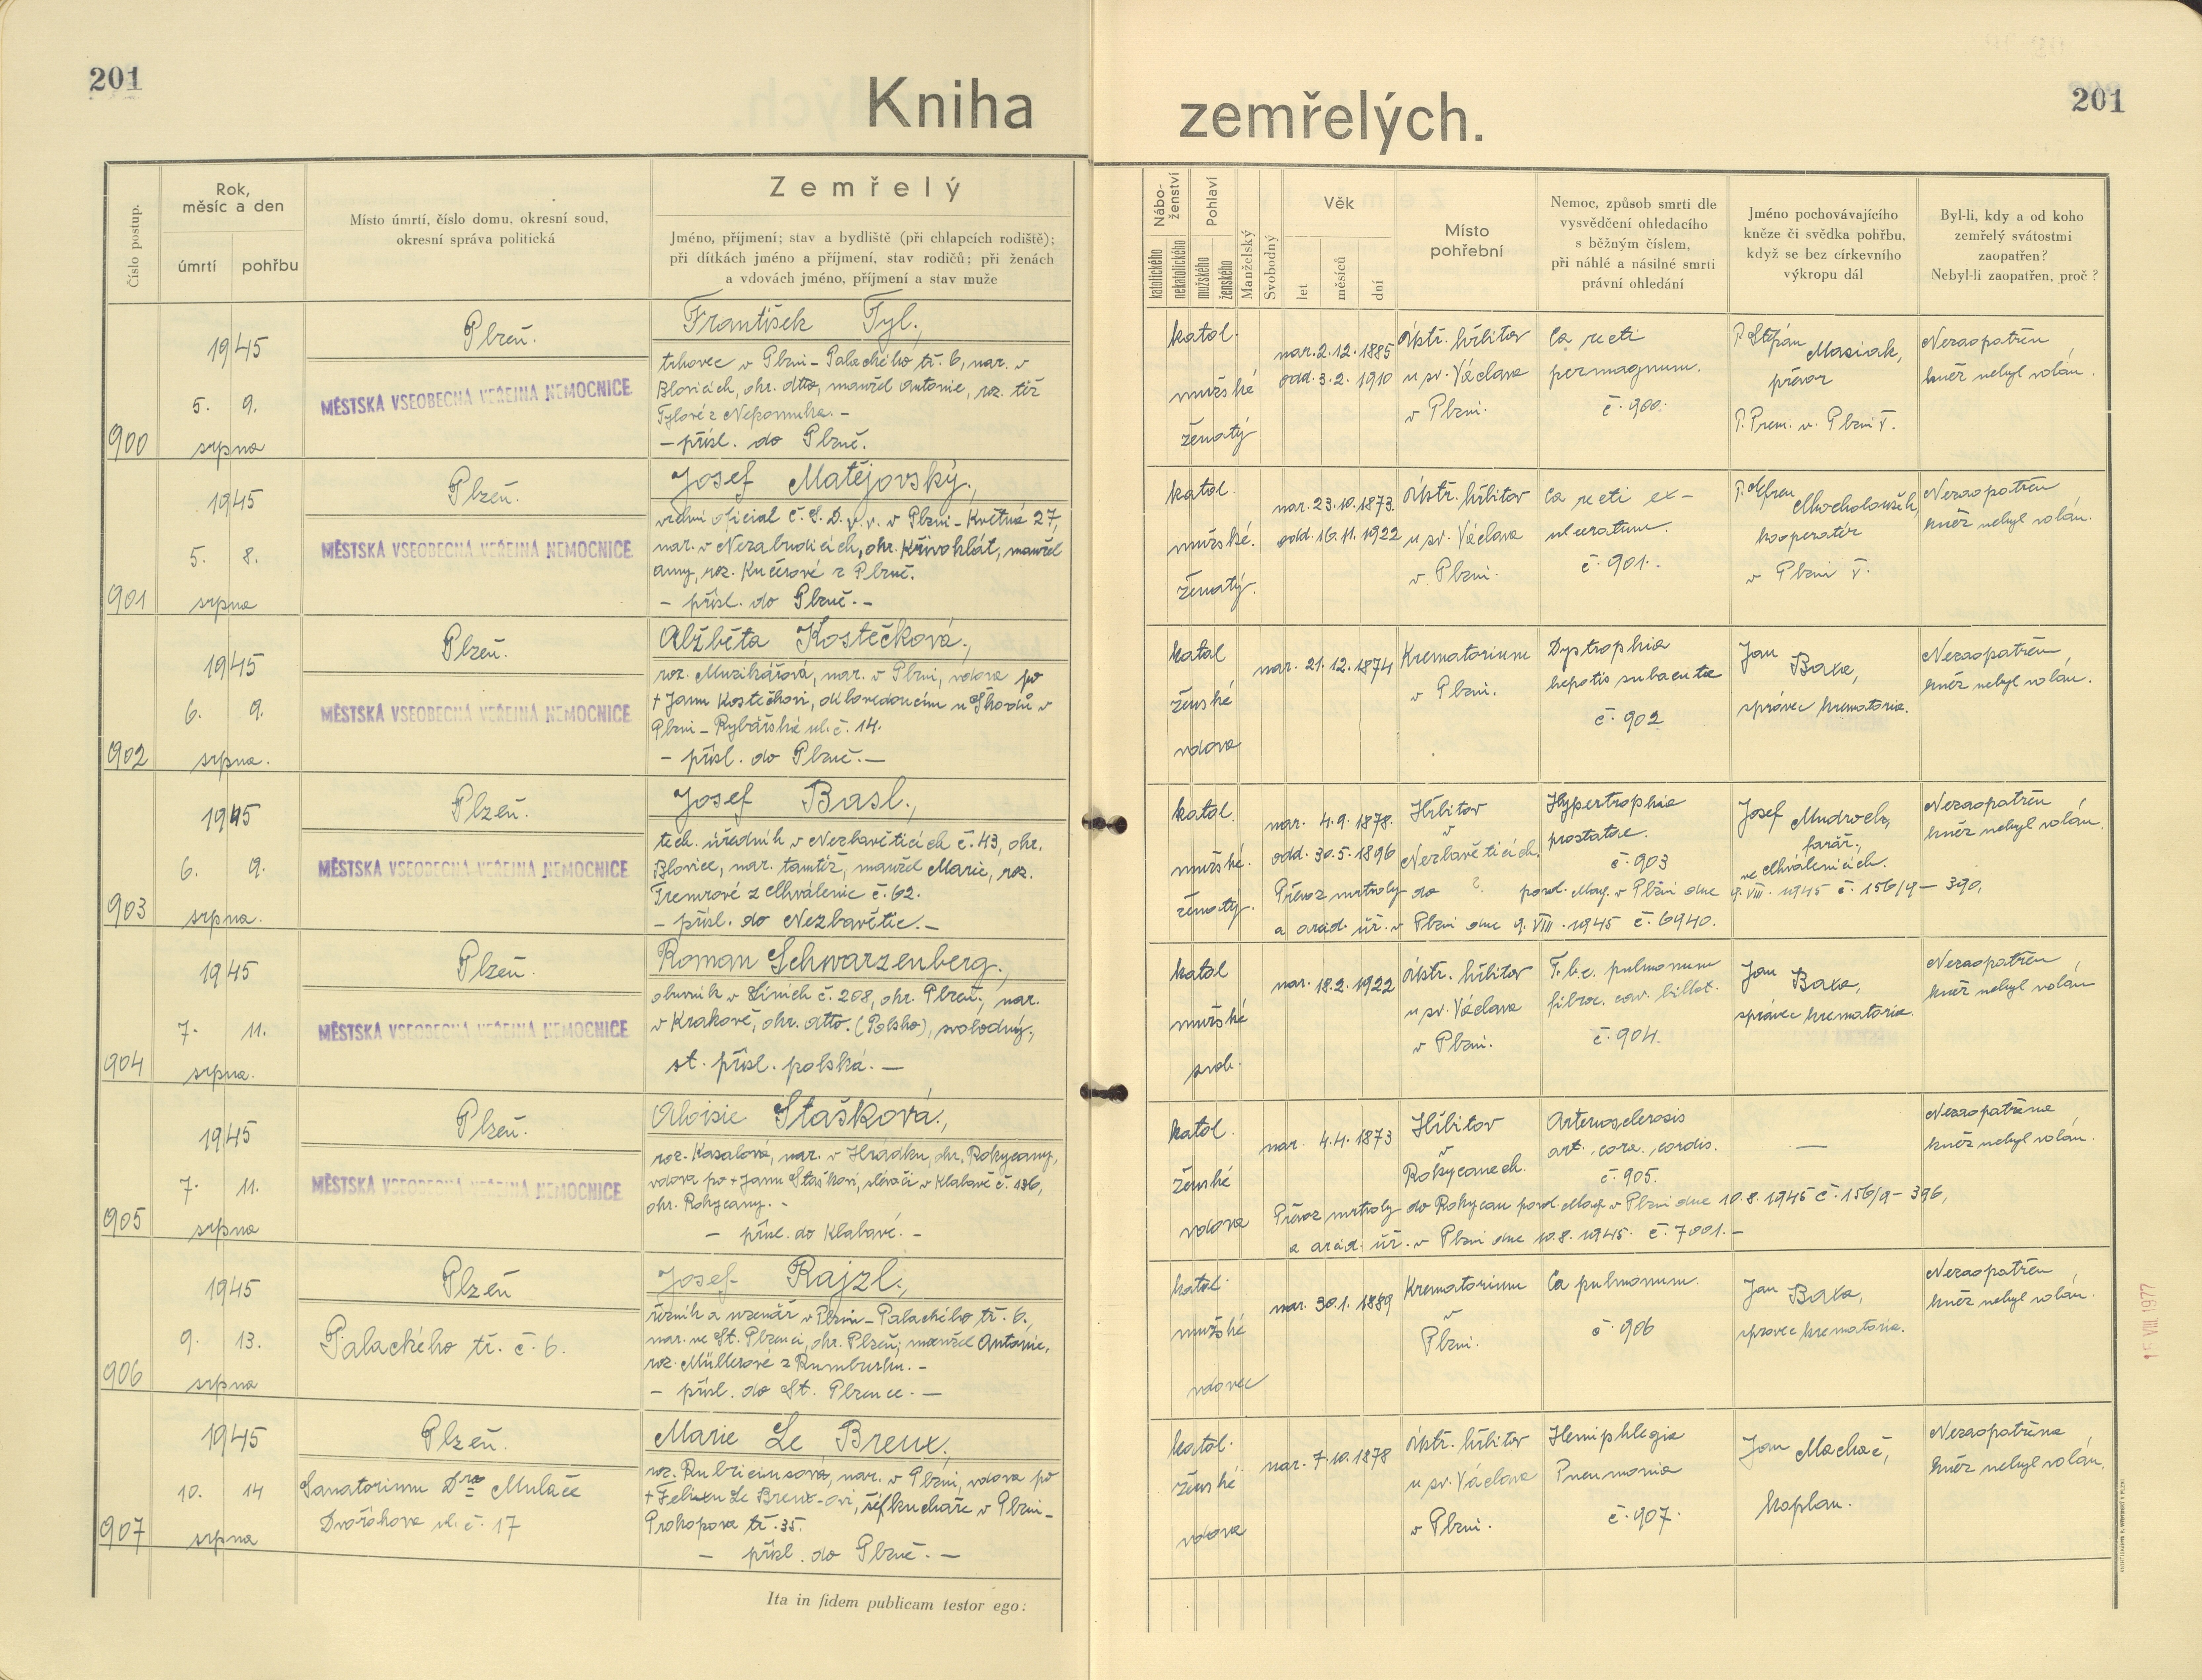 201
Kniha
zemřelých.
201
Číslo postup.
Rok,
měsíc a den
úmrtí
pohřbu
Místo úmrtí, číslo domu, okresní soud,
okresní správa politická
Zemřelý
Jméno, příjmení; stav a bydliště (při chlapcích rodiště);
při dítkách jméno a příjmení, stav rodičů; při ženách
a vdovách jméno, příjmení a stav muže
Nábo-
ženství
katolického
nekatolického
Pohlaví
mužského
ženského
Manželský
Svobodný
Věk
let
měsíců
dní
Místo
pohřební
Nemoc, způsob smrti dle
vysvědčení ohledacího
s běžným číslem,
při náhlé a násilné smrti
právní ohledání
Jméno pochovávajícího
kněze či svědka pohřbu,
když se bez církevního
výkropu dál
Byl-li, kdy a od koho
zemřelý svátostmi
zaopatřen?
Nebyl-li zaopatřen, proč?
900
1945
5. 9.
srpna
Plzeň.
MĚSTSKÁ VSEOBECNÁ VEŘEJNÁ NEMOCNICE
František Tyl.,
trhovec v Plzni - Palackého tř. 6, nar. v
Blovicích, okr. dtto, manžel Antonie, roz. též
Tylové z Nepomuka. -
- přísl. do Plzně.
katol.
mužské
ženatý
nar. 2.12.1885
odd. 3.2.1910
Ústř. hřbitov
u sv. Václava
v Plzni.
Ca recti
permagnum.
č. 900.
P. Štěpán
Masiak,
převor
P. Prem. v Plzni V.
Nezaopatřen,
kněz nebyl volán.
901
1945
5. 8.
srpna
Plzeň.
MĚSTSKÁ VSEOBECNÁ VEŘEJNÁ NEMOCNICE
Josef Matějovský.,
vrchní oficial Č.S.D. v.v. v Plzni - Květná 27,
nar. v Nezabudicích, okr. Křivoklát, manžel
Anny, roz. Kučerové z Plzně.
- přísl. do Plzně. -
katol.
mužské.
ženatý.
nar. 23.10.1873.
odd. 16.11.1922
Ústř. hřbitov
u sv. Václava
v Plzni.
Ca recti ex-
ulceratum.
č. 901.
kooperatér
v Plzni V.
Nezaopatřen
kněz nebyl volán.
902
1945
6. 9.
srpna.
Plzeň.
MĚSTSKÁ VSEOBECNÁ VEŘEJNÁ NEMOCNICE
Alžběta Kostečková.,
roz. Muzikářová, nar. v Plzni, vdova po
+ Janu Kostečkovi, u Škodů v
Plzni - Rybářská ul. č. 14.
- přísl. do Plzně. -
katol
ženské
vdova
nar. 21.12.1874
Krematorium
v Plzni.
Dystrophia
hepatis subacuta
č. 902
Jan
Baxa,
správce krematoria.
Nezaopatřen
kněz nebyl volán.
903
1945
6. 9.
srpna.
Plzeň.
MĚSTSKÁ VSEOBECNÁ VEŘEJNÁ NEMOCNICE
Josef Basl.,
tech. úředník v Nezbavěticích č. 43, okr.
Blovice, nar. tamtéž, manžel Marie, roz.
Tremrové z Chválenic č. 62.
- přísl. do Nezbavětic. -
katol.
mužské.
ženatý.
nar. 4.9.1878.
odd. 30.5.1896
Hřbitov
v
Nezbavěticích.
Hypertrophia
prostatae.
č. 903
Josef Mudroch,
farář,
ve Chválenicích.
Nezaopatřen
kněz nebyl volán.
Převoz mrtvoly do ? povol. Mag. v Plzni dne 9. VIII. 1945 č. 156/9 - 390,
a ořad. úř. v Plzni dne 9. VIII. 1945 č. 6940.
904
1945
7. 11.
srpna.
Plzeň.
MĚSTSKÁ VSEOBECNÁ VEŘEJNÁ NEMOCNICE
Roman Schwarzenberg.,
obuvník v Líních č. 208, okr. Plzeň, nar.
v Krakově, okr. dtto. (Polsko), svobodný,
st. přísl. polská. -
katol
mužské
svob.
nar. 18.2.1922
Ústř. hřbitov
u sv. Václava
v Plzni.
T.b.c. pulmonum
fibroc. cav. billat.
č. 904.
Jan
Baxa,
správce krematoria.
Nezaopatřen,
kněz nebyl volán
905
1945
7. 11.
srpna
Plzeň.
MĚSTSKÁ VSEOBECNÁ VEŘEJNÁ NEMOCNICE
Aloisie Stašková.,
roz. Kasalová, nar. v Hrádku, okr. Rokycany,
vdova po + Janu Staškovi, slévači v Klabavě č. 136,
okr. Rokycany. -
- přísl. do Klabavé. -
katol.
ženské
vdova
nar. 4.4.1873
Hřbitov
v
Rokycanech.
Arteriosclerosis
art. coro. cordis.
č. 905.
—
Nezaopatřena
kněz nebyl volán.
Převoz mrtvoly do Rokycan povol. Mag. v Plzni dne 10.8.1945 č. 156/9 - 396,
a ořad. úř. v Plzni dne 10.8.1945. č. 7001. -
906
1945
9. 13.
srpna
Plzeň
Palackého tř. č. 6.
Josef Rajzl.,
řezník a uzenář v Plzni - Palackého tř. 6.,
nar. ve St. Plzenci, okr. Plzeň, manžel Antonie,
roz. Müllerové z Rumburku. -
- přísl. do St. Plzence. -
katol.
mužské
vdovec
nar. 30.1.1889
Krematorium
v
Plzni.
Ca pulmonum.
č. 906
Jan Baxa,
správce krematoria.
Nezaopatřen
kněz nebyl volán.
907
1945
10. 14
srpna
Plzeň.
Sanatorium Dra Mulače
Dvořákova ul. č. 17
Marie Le Breux.
roz. Rubriciusová, nar. v Plzni, vdova po
+ Felixu Le Breux-ovi, šéfkuchaře v Plzni -
Prokopova tř. 35.
- přísl. do Plzně. -
katol.
ženské
vdova
nar. 7.10.1878
Ústř. hřbitov
u sv. Václava
v Plzni.
Hemiphlegia
Pneumonia
č. 907.
Jan Machač,
kaplan.
Nezaopatřena
kněz nebyl volán.
Ita in fidem publicam testor ego: